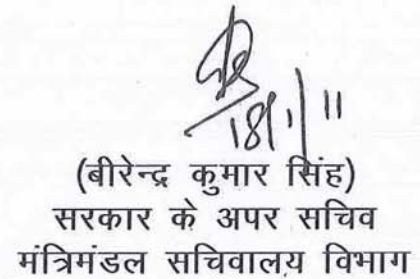 18/1/11
(बीरेन्द्र कुमार सिंह)
सरकार के अपर सचिव
मंत्रिमंडल सचिवालय विभाग